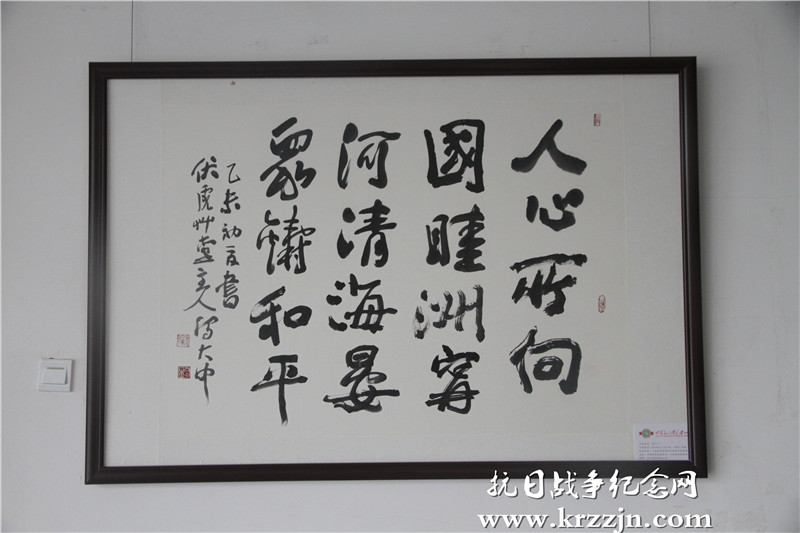 人心所向
國睦洲寧
河清海晏
眾鑄和平
乙未初夏書
伏虎艸堂主人
大中
抗日战争纪念网
www.krzzjn.com